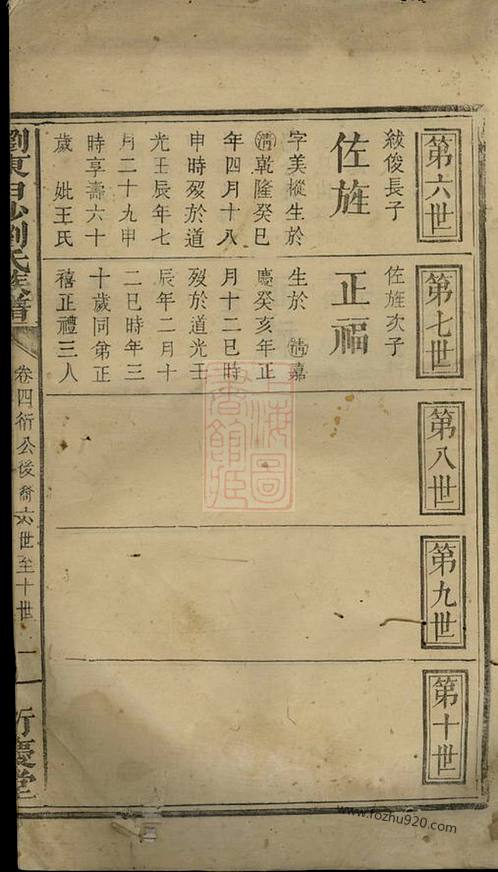 第六世
紱俊長子
佐旌
字美樅生於
清乾隆癸巳
年四月十八
申時歿於道
光壬辰年七
月二十九申
時享壽六十
歲　妣王氏
第七世
佐旌次子
正福
生於　清嘉
慶癸亥年正
月十二巳時
歿於道光壬
辰年二月十
二巳時年三
十歲同弟正
禧正禮三人
第八世
第九世
第十世
劉氏族譜
卷四衍公後裔六世至十世
一
慶堂
上海圖書館藏
www.fozhu920.com